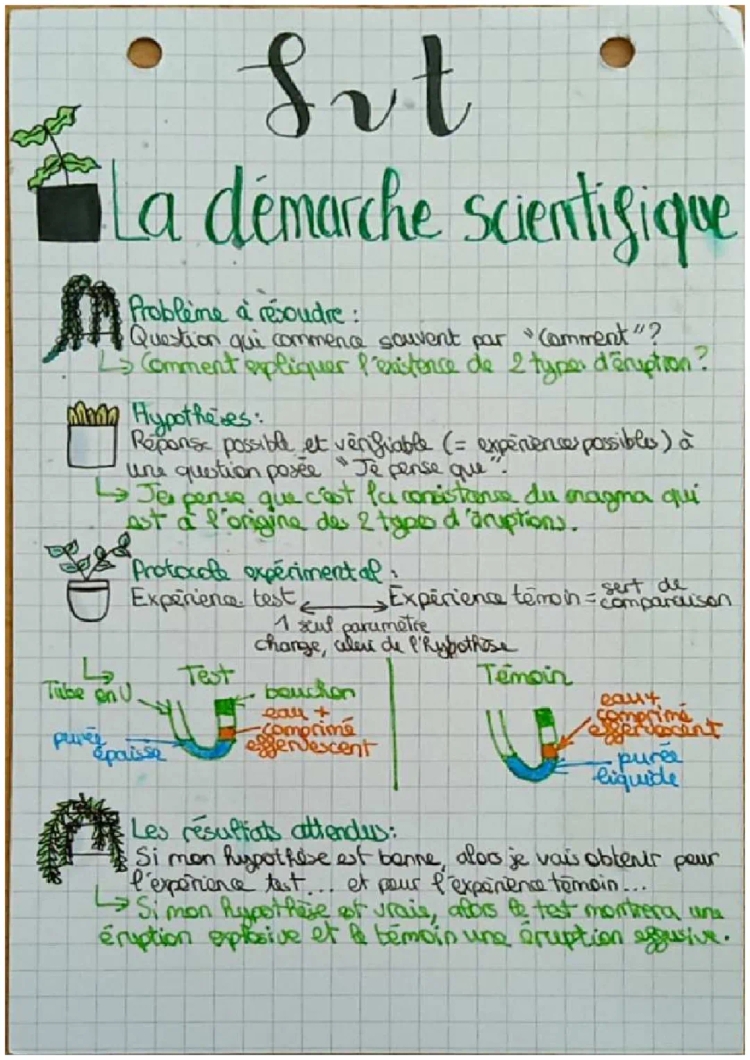 Svt
La démarche scientifique
Problème à résoudre :
Question qui commence souvent par "Comment" ?
↳ Comment expliquer l'existence de 2 types d'éruption ?
Hypothèses :
Réponse possible et vérifiable (= expériences possibles) à
une question posée "Je pense que".
↳ Je pense que c'est la consistance du magma qui
est à l'origine des 2 types d'éruptions.
Protocole expérimental :
Expérience test ↔ Expérience témoin = sert de
comparaison
1 seul paramètre
change, celui de l'hypothèse
↳ Test
Témoin
Tube en U
bouchon
eau +
comprimé
effervescent
purée
épaisse
eau +
comprimé
effervescent
purée
liquide
Les résultats attendus :
Si mon hypothèse est bonne, alors je vais obtenir pour
l'expérience test... et pour l'expérience témoin...
↳ Si mon hypothèse est vraie, alors le test montrera une
éruption explosive et le témoin une éruption effusive.